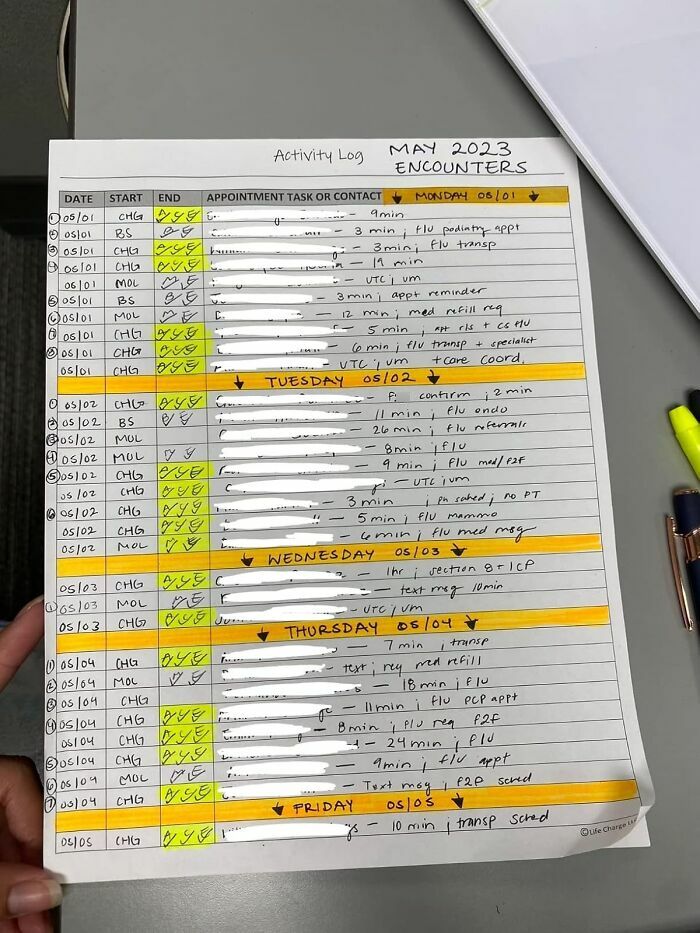 Activity Log MAY 2023
ENCOUNTERS
DATE START END APPOINTMENT TASK OR CONTACT ↓ MONDAY 05/01 ↓
① 05/01 CHG — 9min
② 05/01 BS — 3 min ; f/u podiatry appt
③ 05/01 CHG — 3min ; f/u transp
④ 05/01 CHG — 19 min
05/01 MOL — UTC ; vm
⑤ 05/01 BS — 3min ; appt reminder
⑥ 05/01 MOL — 12 min ; med refill req
05/01 CHG — 5 min ; + cs f/u
⑧ 05/01 CHG — 6 min ; f/u transp + specialist
05/01 CHG — UTC ; vm + care coord.
↓ TUESDAY 05/02 ↓
① 05/02 CHG — confirm ; 2 min
② 05/02 BS — 11 min ; f/u endo
③ 05/02 MOL — 26 min ; f/u referrals
④ 05/02 MOL — 8min ; f/u
⑤ 05/02 CHG — 9 min ; f/u med/F2F
05/02 CHG — UTC ; vm
⑥ 05/02 CHG — 3 min ; sched ; no PT
05/02 CHG — 5 min ; f/u mammo
05/02 MOL — 6 min ; f/u med msg
↓ WEDNESDAY 05/03 ↓
05/03 CHG — 1hr ; section 8 + ICP
① 05/03 MOL — text msg 10min
05/03 CHG — UTC ; vm
↓ THURSDAY 05/04 ↓
① 05/04 CHG — 7 min ; transp
② 05/04 MOL - text ; req med refill
③ 05/04 CHG — 18 min ; f/u
05/04 CHG — 11min ; f/u PCP appt
④ 05/04 CHG — 8min ; f/u req F2F
05/04 CHG — 24 min ; f/u
⑤ 05/04 MOL — 9min ; f/u appt
⑥ 05/04 CHG — Text msg ; F2F sched
⑦
↓ FRIDAY 05/05 ↓
05/05 CHG — 10 min ; transp sched
© Life Charge